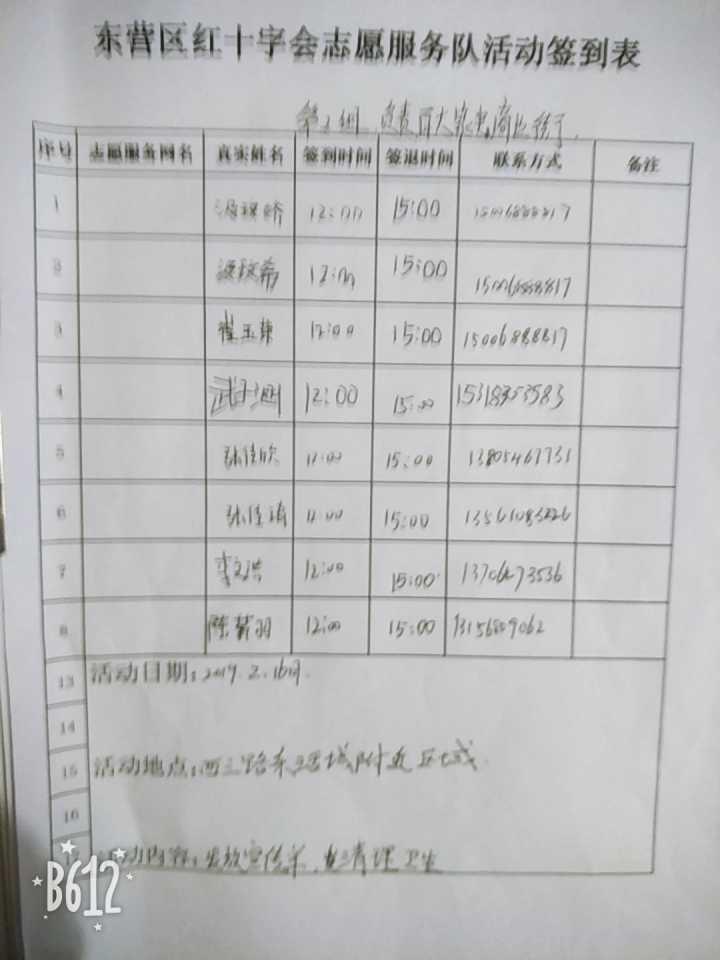 东营区红十字会志愿服务队活动签到表
第2组 负责百大家电商业街了.
序号 志愿服务网名 真实姓名 签到时间 签退时间 联系方式 备注
1 12:00 15:00 15006888817
2 12:00 15:00 15006888817
3 翟玉 12:00 15:00 15006888817
4 武 12:00 15:00 15318353583
5 张佳欣 12:00 15:00 13805467731
6 张佳 12:00 15:00
7 李文浩 12:00 15:00 13706473536
8 陈 羽 12:00 15:00 13156809062
13 活动日期: 2019.2.16日.
14
15 活动地点: 西三路东 城附近区域
16
17 活动内容: 发放宣传单, 清理卫生
B612